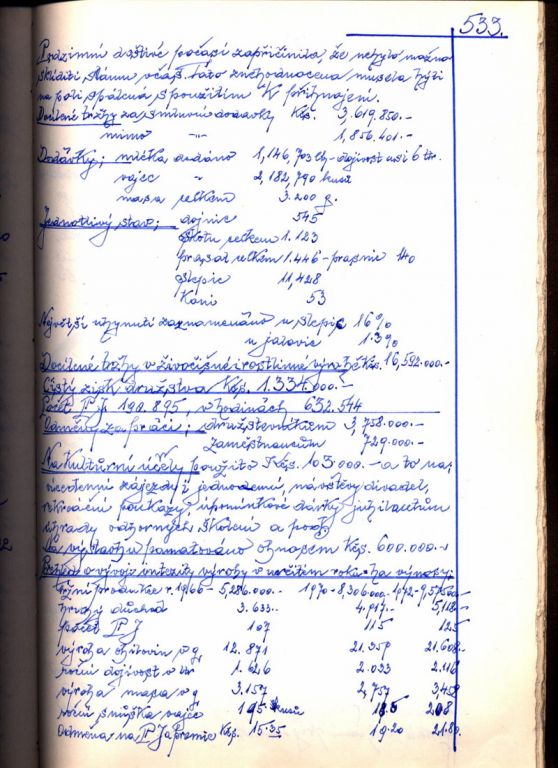 533.
Podzimní deštivé počasí zapříčinilo, že nebylo možno
sklíditi slámu včas. Táto znehodnocena musela býti
na poli spálena, s použitím K přihnojení.
Docílené tržby za smluvní dodávky Kčs. 3,619.850.-
mimo -"- 1,856.401.-
Dodávky; mléka dodáno 1,146,703 lt.- dojivost asi 6 ltr.
vajec -"- 2,182,790 kusů
masa celkem 3.200 q.
Jednotlivý stav; dojnic 545
skotu celkem 1.123
prasat celkem 1.446 - prasnic 140
slepic 11,428
Koní 53
Největší uhynutí zaznamenáno u slepic 16%
u jalovic 1.3%
Docílené tržby v živočišné i rostlinné výrobě Kčs. 16,592.000.-
Čistý zisk družstva Kčs. 1.334.000.-
Počet P.J. 190.895, v hodinách 632.544
Odměny za práci; družstevníkům 3,758.000.-
zaměstnancům 729.000.-
Na Kulturní účely použito Kčs. 103.000.- a to na;
vícedenní zájezdy i jednodenní, návštěvy divadel,
rekreační poukazy, upomínkové dárky jubilantům
úhrady odborných školení a pod.
Na výstavbu pamatováno obnosem Kčs. 600.000.-
o vývoji intezity výroby v určitém roku- ha výměry;
tržní produkce r. 1960 - 5,286.000.- 1970 - 8,306.000.- 1972 -
hrubý důchod 3.633.- 4.917.- 5,118.-
počet P J 107 115 125
výroba obilovin v q. 12.871 21.357 21.608.-
roční dojivost v ltr 1.626 2.033 2.116
výroba masa v q 3.157 2,757 3,458
roční snůška vajec 195 kusů 185 208
Odměna na P J a prémie Kčs. 15.35 19.20 21.80.